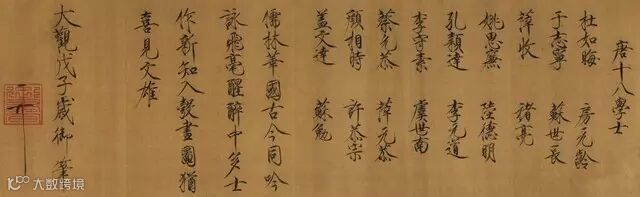 唐十八學士
杜如晦 房元齡
于志寧 蘇世長
薛收 褚亮
姚思廉 陸德明
孔穎達 李元道
李守素 虞世南
蔡允恭 薛元敬
顏相時 許敬宗
蓋文達 蘇勉
儒林華國古今同吟
詠飛毫醒醉中多士
作新知入彀畫圖猶
喜見文雄
大觀戊子歲御筆
大数跨境